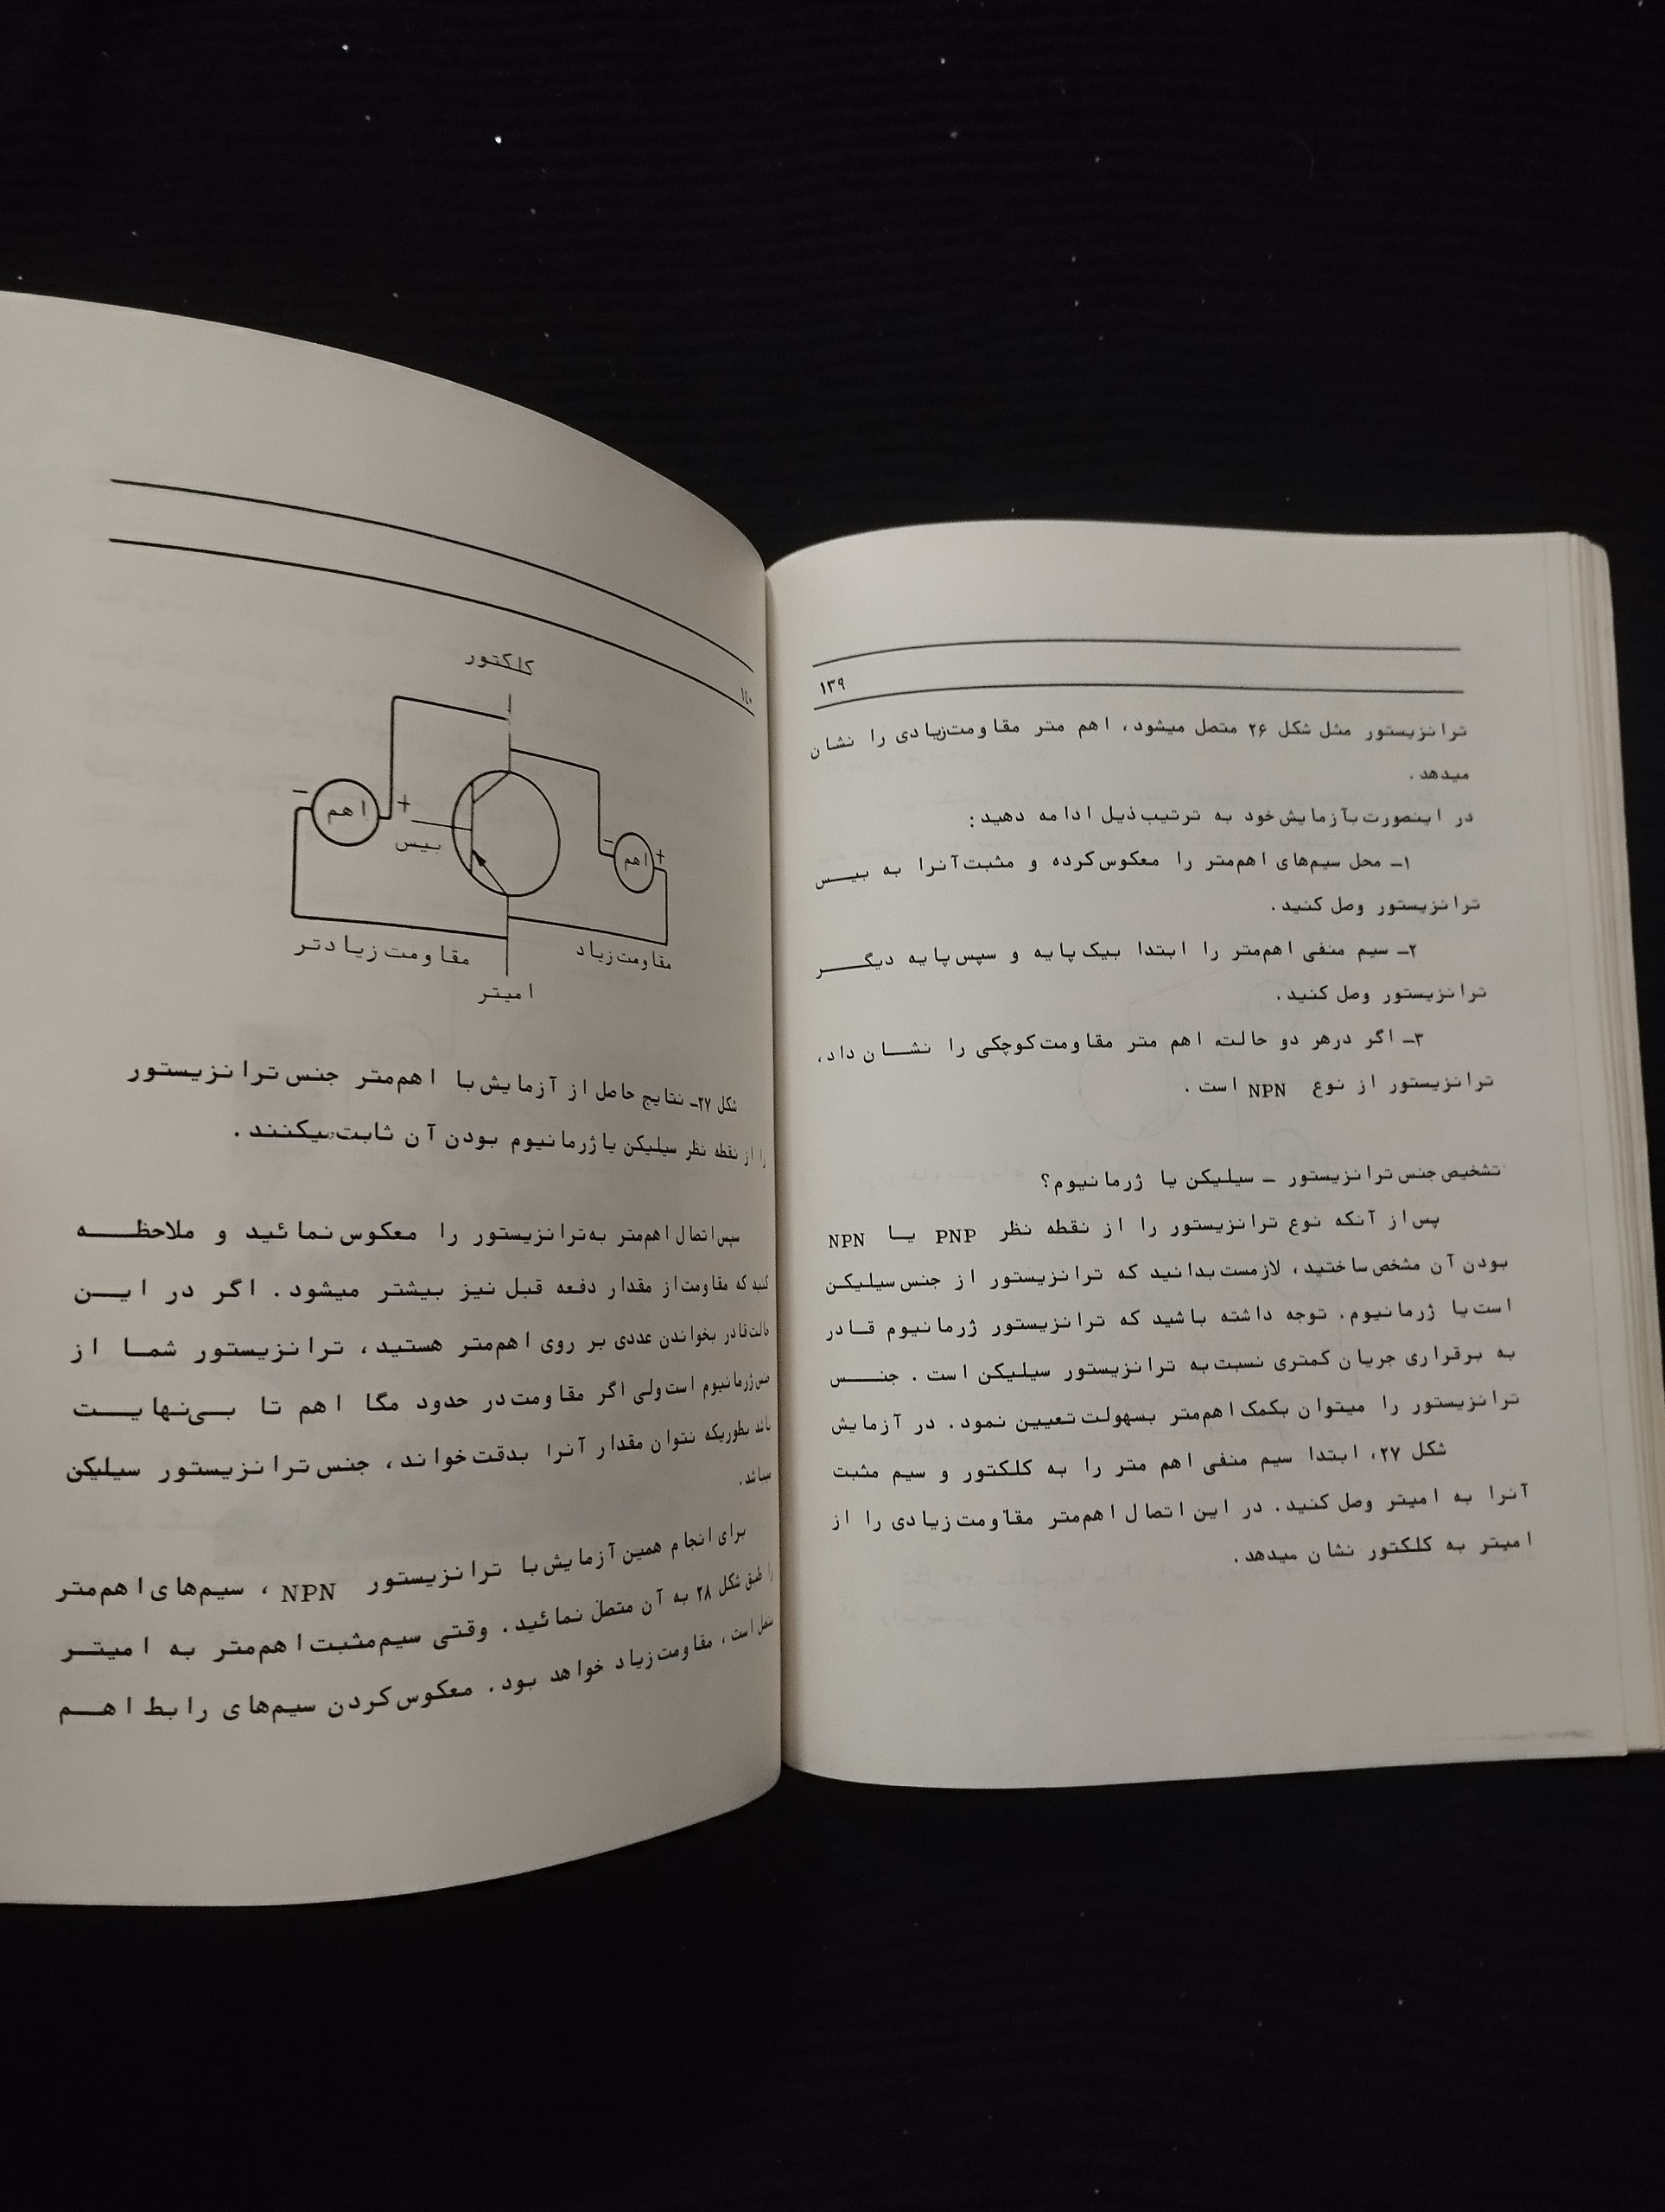 ۱۳۹
ترانزیستور مثل شکل ۲۶ متصل میشود، اهم متر مقاومت‌زیادی را نشان
میدهد.
در اینصورت بآزمایش‌خود به ترتیب‌ذیل ادامه دهید:
۱ـ محل سیم‌های اهم‌متر را معکوس‌کرده و مثبت‌آنرا به بیـــس
ترانزیستور وصل کنید.
۲ـ سیم منفی اهم‌متر را ابتدا بیک‌پایه و سپس‌پایه دیگـــر
ترانزیستور وصل کنید.
۳ـ اگر درهر دو حالت، اهم متر مقاومت‌کوچکی را نشـــان داد،
ترانزیستور از نوع NPN است.
تشخیص جنس ترانزیستور ـ سیلیکن یا ژرمانیوم؟
پس‌از آنکه نوع ترانزیستور را از نقطه نظر PNP یــا NPN
بودن آن مشخص‌ساختید، لازمست‌بدانید که ترانزیستور از جنس‌سیلیکـن
است‌یا ژرمانیوم. توجه داشته باشید که ترانزیستور ژرمانیوم قــادر
به برقراری جریان کمتری نسبت‌به ترانزیستور سیلیکن است. جنـــس
ترانزیستور را میتوان بکمک‌اهم‌متر بسهولت‌تعیین نمود. در آزمایش
شکل ۲۷، ابتدا سیم منفی اهم متر را به کلکتور و سیم مثبت
آنرا به امیتر وصل کنید. در این اتصال اهم‌متر مقاومت‌زیادی را از
امیتر به کلکتور نشان میدهد.
۱۴۰
کلکتور
ـ
اهم
+
بیس
ـ
اهم
+
مقاومت زیادتر
مقاومت‌زیاد
امیتر
شکل ۲۷ـ نتایج حاصل از آزمایش‌با اهم‌متر جنس‌ترانزیستور
را از نقطه نظر سیلیکن یاژرمانیوم بودن آن ثابت‌میکنند.
سپس‌اتصال اهم‌متر به‌ترانزیستور را معکوس‌نمائید و ملاحظـــه
کنید که مقاومت‌از مقدار دفعه قبل نیز بیشتر میشود. اگر در ایــن
حالت‌قادر بخواندن عددی بر روی اهم‌متر هستید، ترانزیستور شمــا از
جنس‌ژرمانیوم است‌ولی اگر مقاومت‌در حدود مگا اهم تا بــی‌نهایــت
باشد بطوریکه نتوان مقدار آنرا بدقت‌خواند، جنس‌ترانزیستور سیلیکن
میباشد.
برای انجام همین آزمایش‌با ترانزیستور NPN، سیم‌های‌اهم‌متر
را طبق شکل ۲۸ به آن متصل نمائید. وقتی سیم‌مثبت‌اهم‌متر به امیتــر
متصل است، مقاومت‌زیاد خواهد بود. معکوس‌کردن سیم‌های رابط اهــم